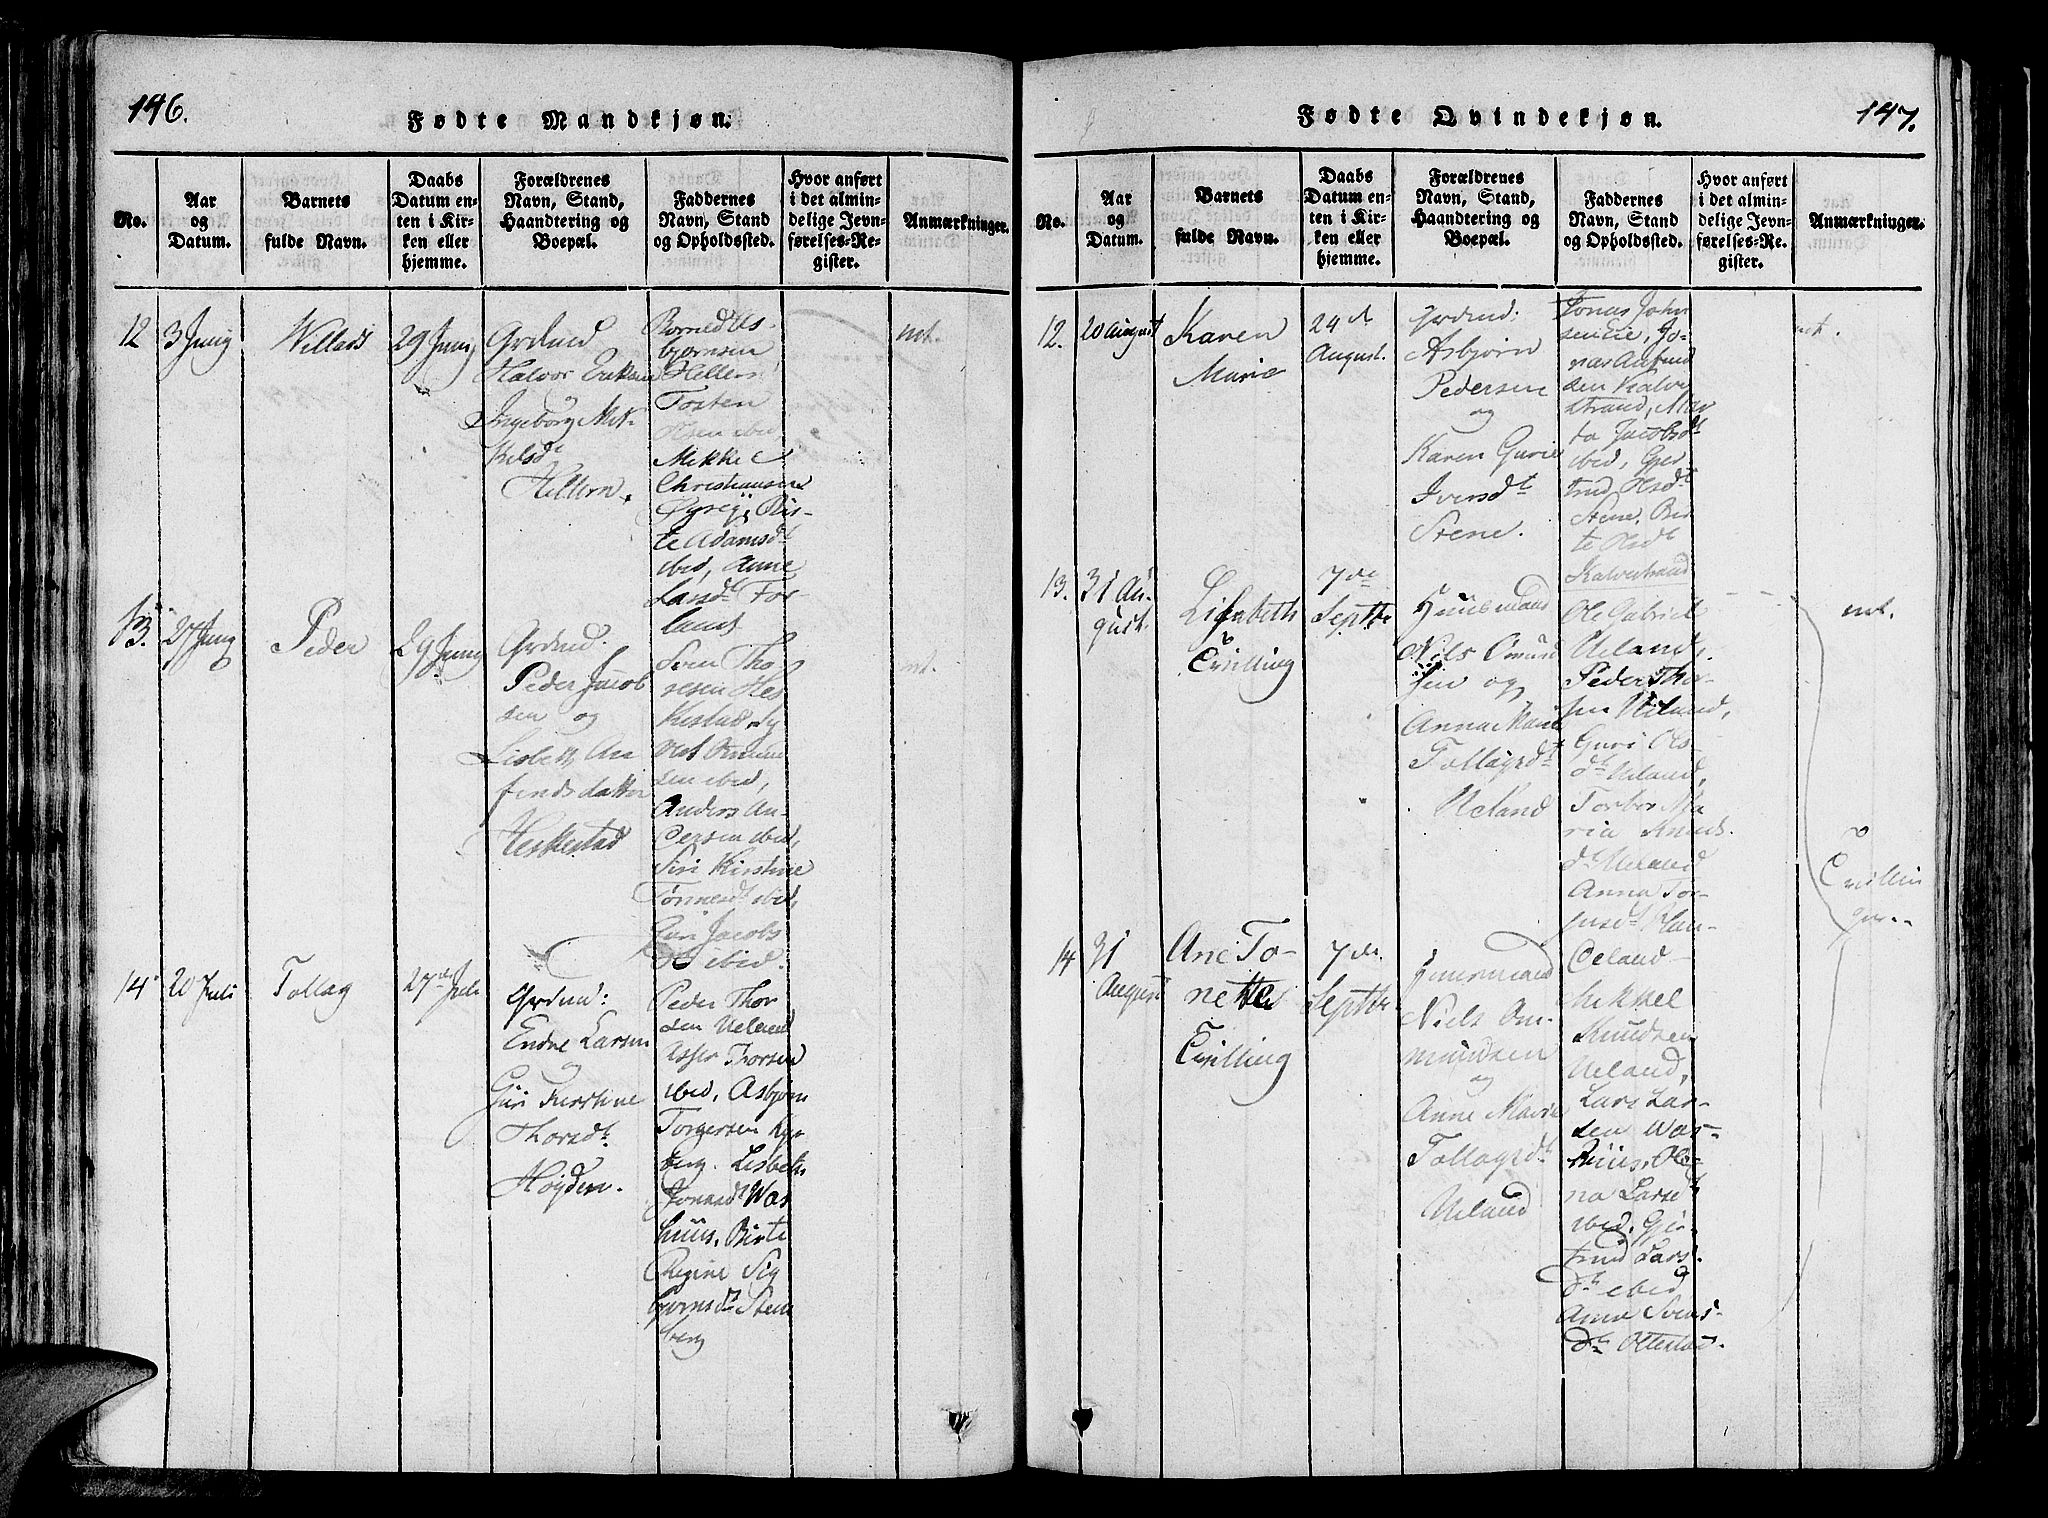 146.
Fødte Mandkjøn.
No.
Aar
og
Datum.
Barnets
fulde Navn.
Daabs
Datum en-
ten i Kir-
ken eller
hjemme.
Forældrenes
Navn, Stand,
Haandtering og
Boepæl.
Faddernes
Navn, Stand
og Opholdssted.
Hvor anført
i det almin-
delige Jevn-
førelses-Re-
gister.
Anmærkninger.
12
3 Juny
Willads
29 Juny
Grdmd
Halvor Eriksen
Ingeborg Mik-
kelsdt
Hellern.
bjørnsen
Hellern
Tosten
Olsen ibid.
Mikkel
Christiansen
te Adamsdt
ibid, Anne
Larsdt For-
land
not.
13.
27 Juny
Peder
29 Juny
Grdmd:
Peder Jacob
sen og
Lisbeth An
findsdatter
Heskestad
Sven Tho
resen Hes
kestad
sen ibid,
Anders An-
dersen ibid,
Siri Kirstine
Tønnesdt ibid,
Guri Jacobs
dt ibid.
nt.
14
20 Juli
Tollag
27de Juli
Grdmd:
Endre Larsen
og
Guri Kirstine
Thorsdt
Høyden.
Peder Thor
sen Ueland
Asser Thorsen
ibid, Asbjørn
Torgersen
berg. Lisbeth
Jonasdt Was
huus, Birte
Regine Sig
bjørnsdt Sten
berg
147.
Fødte Qvindekjøn.
No.
Aar
og
Datum.
Barnets
fulde Navn.
Daabs
Datum en-
ten i Kir-
ken eller
hjemme.
Forældrenes
Navn, Stand,
Haandtering og
Boepæl.
Faddernes
Navn, Stand
og Opholdssted.
Hvor anført
i det almin-
delige Jevn-
førelses-Re-
gister.
Anmærkninger.
12.
20 August
Karen
Marie
24de
August.
Grdmd:
Asbjørn
Pedersen
og
Karen Gurie
Iversdt
Stene.
Jonas John
sen Eie, Jo-
nas Aafind
sen Kalve
strand, Mar
ta Jacobsdt
ibid, Gjer
trud Olsdt
Stene, Bir
te Olsdt
Kalvestrand
nt.
13.
31 Au-
gust.
Lisabeth
Tvilling
7de
Septbr
Huusmand
Niels Omund
sen og
Anna Marie
Tollagsdt
Ueland
Ole Gabriel
Ueland,
Peder Thor-
sen Ueland,
Guri Ols-
dt Ueland,
Torbor Ma
ria Knuds-
dt Ueland
Anna Tor-
not.
Tvillin
ger
14
31
August
Ane To-
nette
Tvilling
7de
Septbr
Huusmand
Niels Om-
mundsen
og
Anne Marie
Tollagsdt
Ueland
Oeland
Mikkel
Knudsen
Ueland,
Lars Lar-
sen Was-
huus, Ole-
na Larsdt
ibid, Gjer
trud Lars-
dt ibid
Anne Svens-
dt Ollestad.